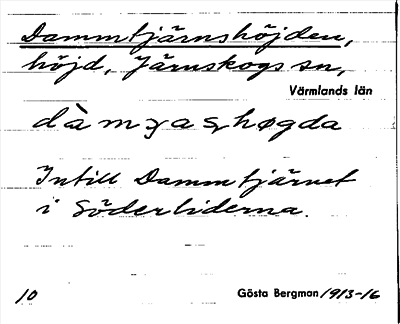 Dammtjärnshöjden,
höjd, Järnskogs sn,
Värmlands län
Intill Dammtjärnet
i Söderliderna.
10 Gösta Bergman 1913-16